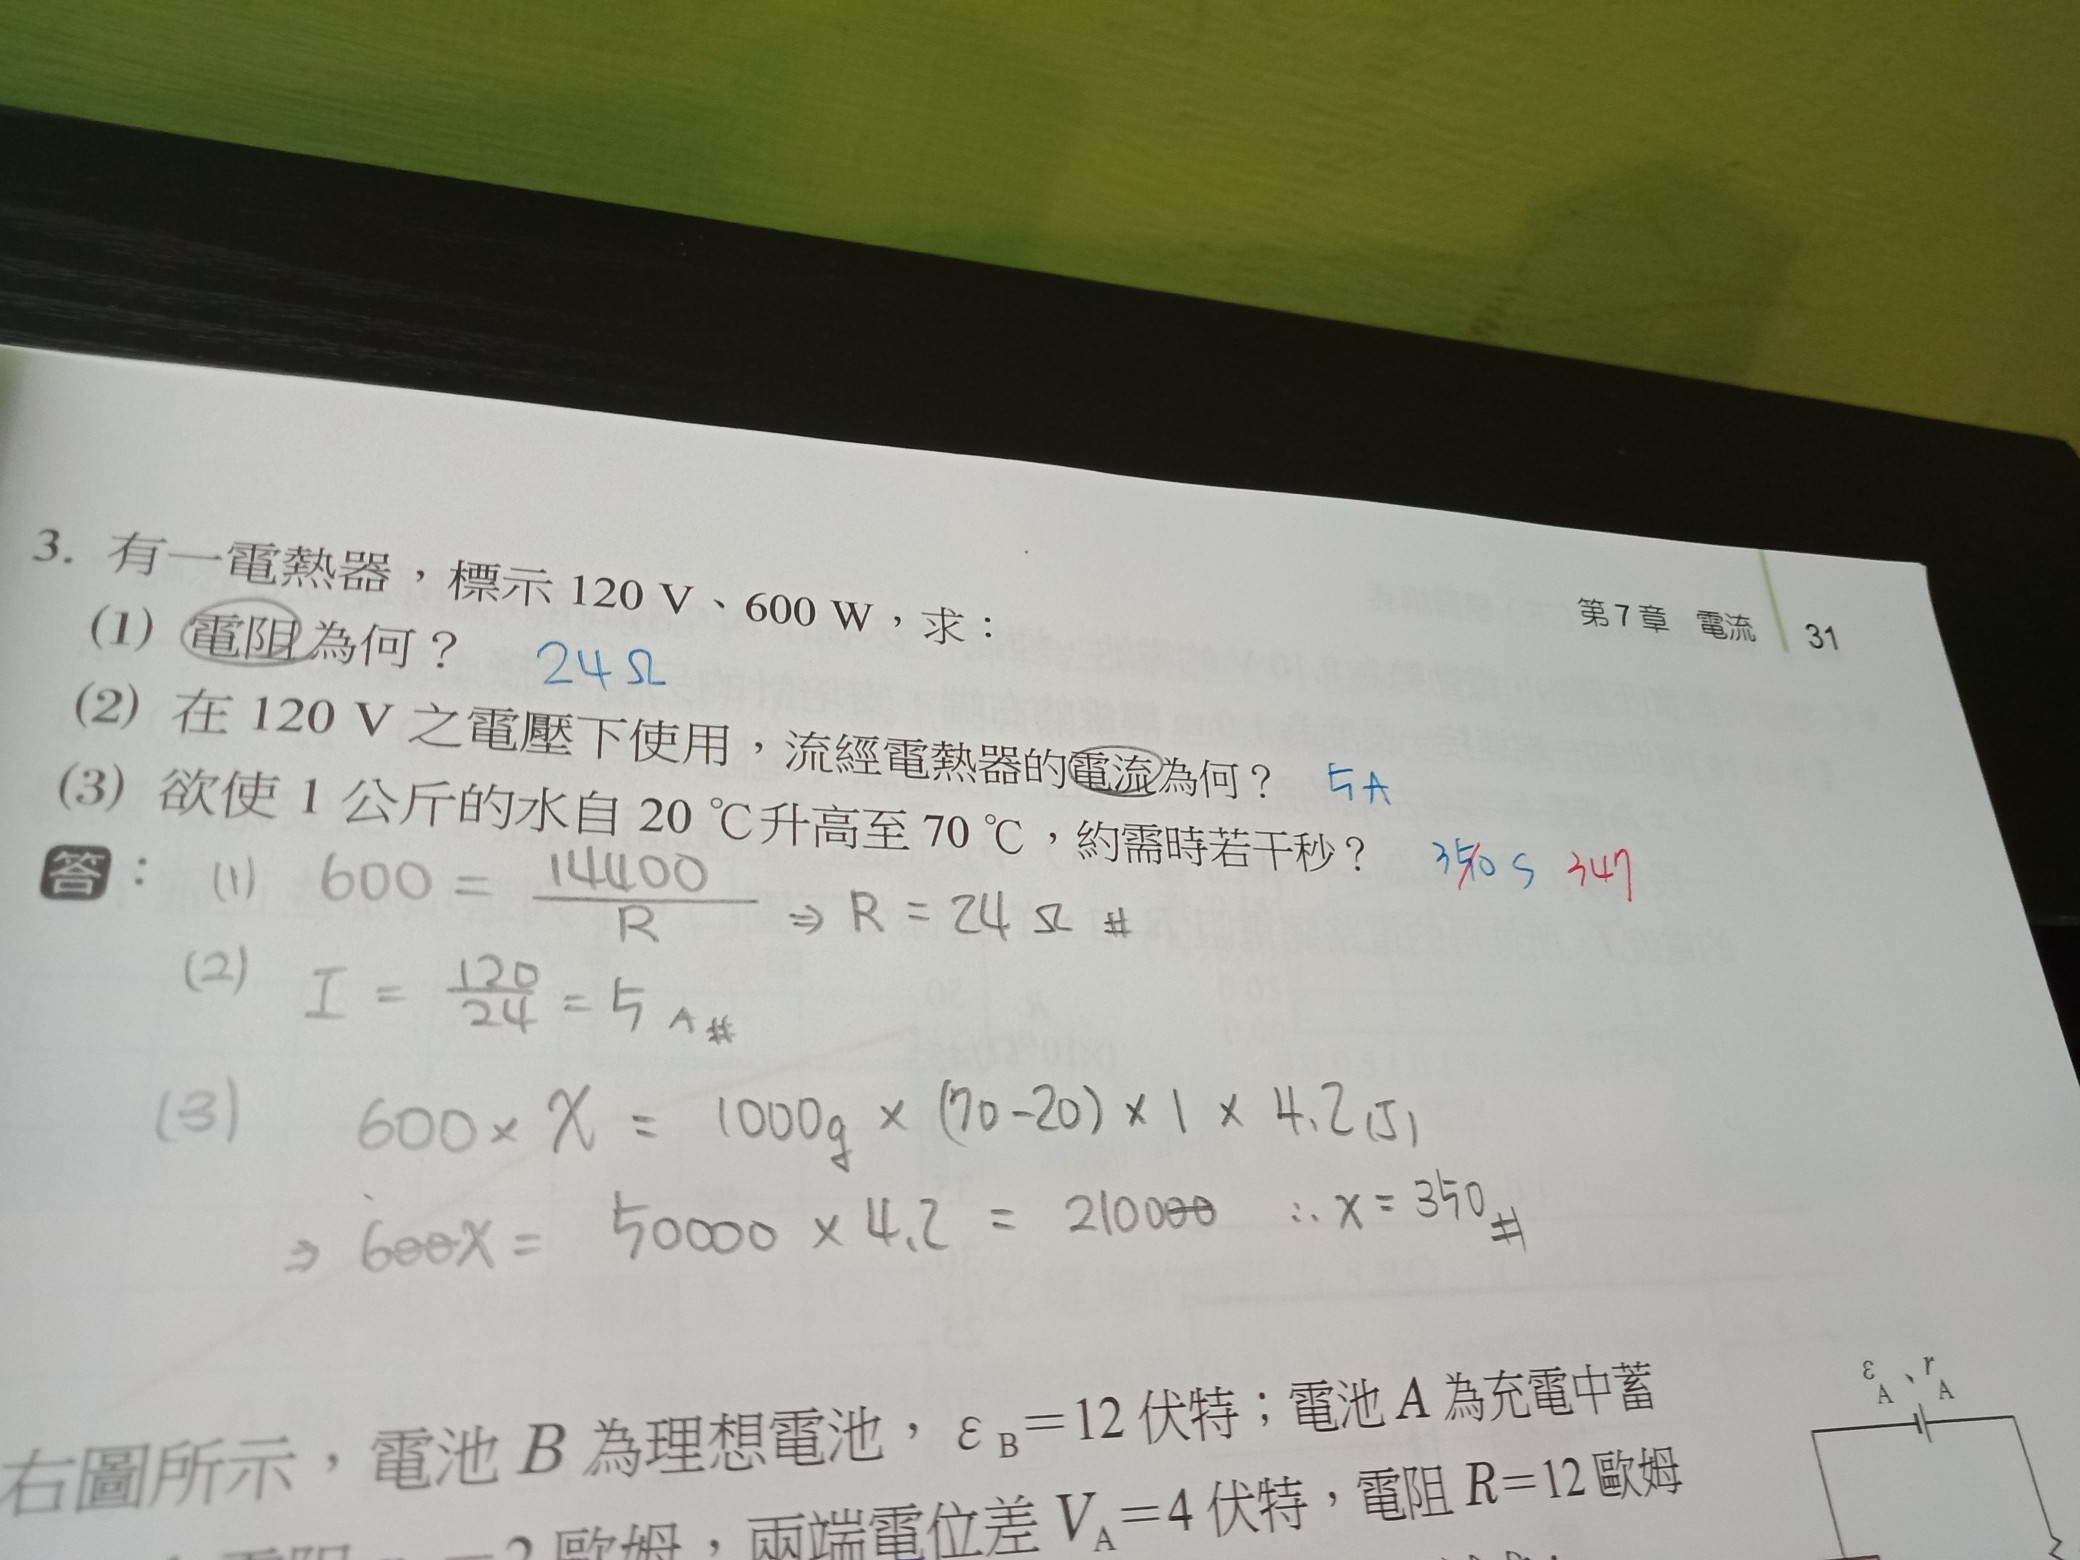 第7章 電流 31
3. 有一電熱器，標示 120 V、600 W，求：
(1) 電阻為何？ 24Ω
(2) 在 120 V 之電壓下使用，流經電熱器的電流為何？ 5A
(3) 欲使 1 公斤的水自 20 ℃升高至 70 ℃，約需時若干秒？ 350 s 347
答： (1) 600 = 14400/R ⇒ R = 24 Ω #
(2) I = 120/24 = 5 A #
(3) 600 × X = 1000g × (70-20) × 1 × 4.2 (J)
⇒ 600X = 50000 × 4.2 = 210000 ∴ x = 350 #
右圖所示，電池 B 為理想電池，ε B＝12 伏特；電池 A 為充電中蓄
歐姆，兩端電位差 V A＝4 伏特，電阻 R＝12 歐姆
ε A、r A